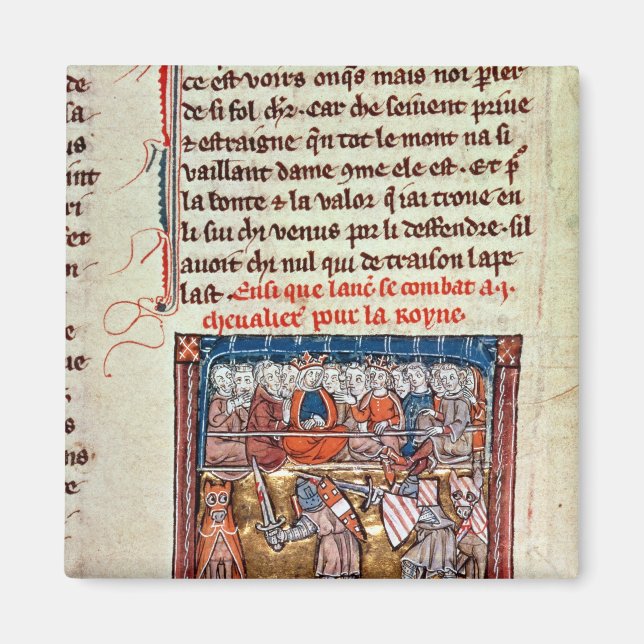 de
sa
us
int
ri
fet
n
e
e
s
e
ce est voirs onq̃s mais noi ꝑler
de si fol chr̃. Car che seiuent priue
⁊ estraigne qñ tot le mont na si
vaillant dame ꝯme ele est. Et ꝑ
la bonte ⁊ la valor q̃ iai troue en
li sui chi venus por li deffendre. sil
auoit chi nul qui de traison lape
last. Ensi que lanc̃. se combat a .j.
cheualier pour la Royne.